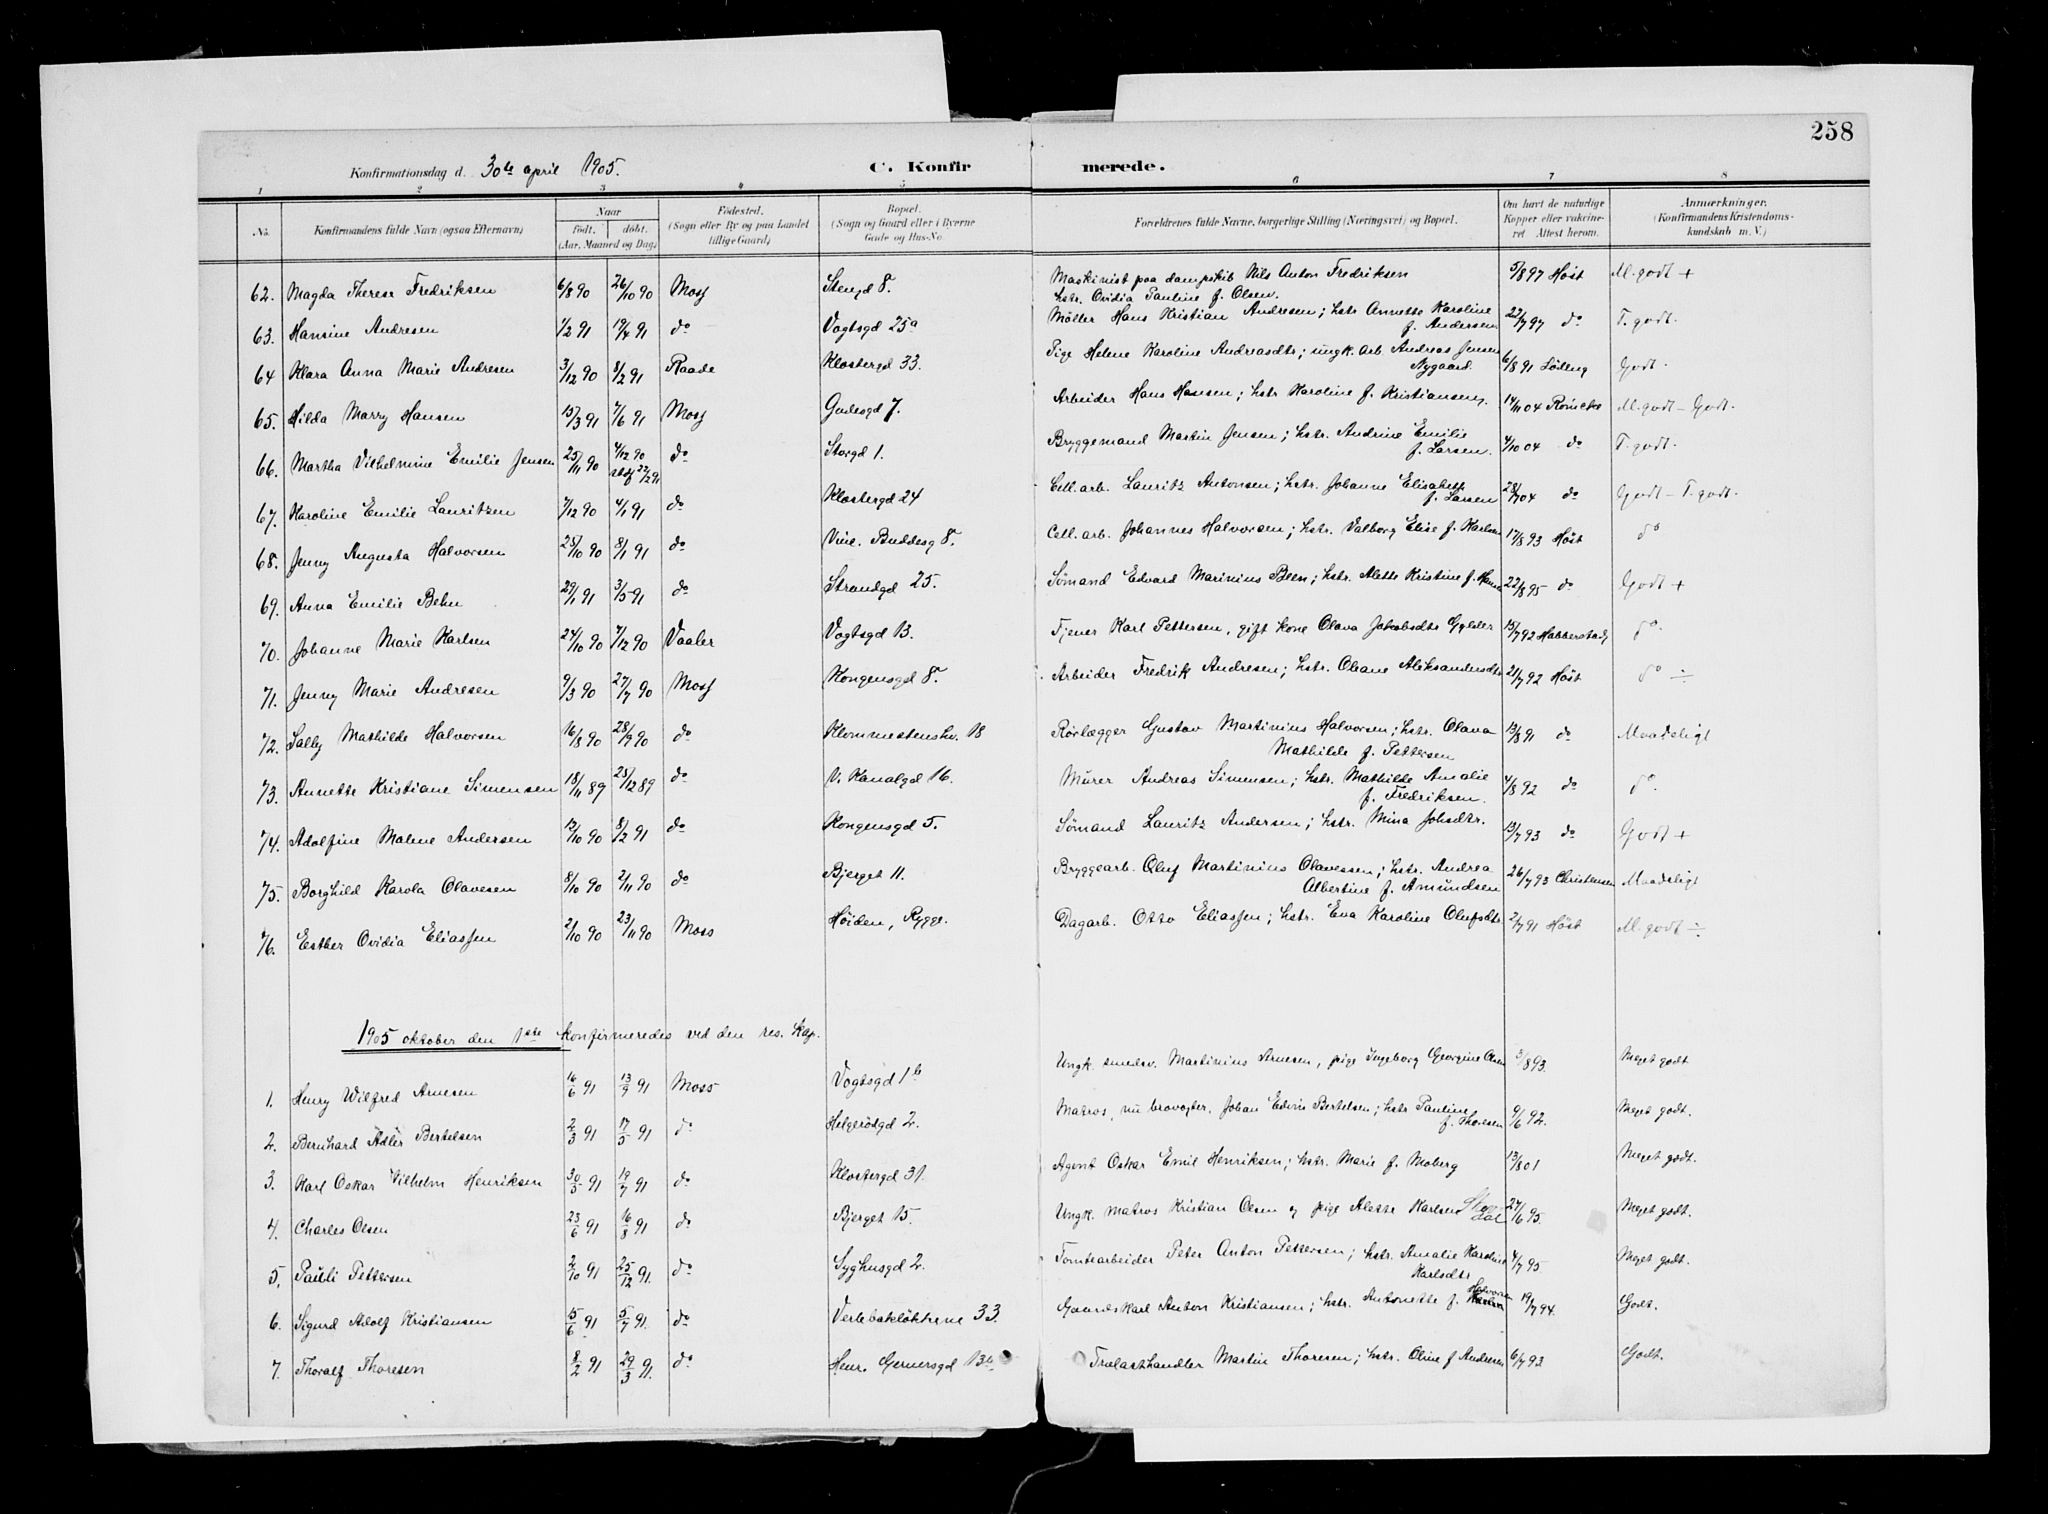 258
Konfirmationsdag d. 30te april 1905.
C. Konfirmerede.
1 2 3 4 5 6 7 8
No.
Konfirmandens fulde Navn (ogsaa Efternavn)
Naar
født. døbt.
(Aar, Maaned og Dag)
Fødested.
(Sogn eller By og paa Landet tillige Gaard)
Bopæl.
(Sogn og Gaard eller i Byerne Gade og Hus-No.
Forældrenes fulde Navne, borgerlige Stilling (Næringsvei) og Bopæl.
Om havt de naturlige Kopper eller vakcineret Attest herom.
Anmærkninger.
(Konfirmandens Kristendomskundskab m. V.)
62. Magda Therese Fredriksen 6/8 90 26/10 90 Moss Stengd 8. Maskinist paa dampskib Nils Anton Fredriksen 5/8 97 Høst M. godt +
hstr. Ovidia Pauline f. Olsen.
63. Hansine Andresen 1/2 91 19/4 91 do Vogtsgd 25a Møller Hans Kristian Andresen; hstr Annette Karoline 22/7 97 do T. godt.
f. Andersen
64 Klara Anna Marie Andresen 3/12 90 8/2 91 Raade Klostergd 33. Pige Helene Karoline Andreasdtr; ungk. arb. Andreas Jensen 6/8 91 Godt.
Nygaard.
65. Hilda Marry Hansen 15/3 91 7/6 91 Moss Gudesgd 7. Arbeider Hans Hansen; hstr Karoline f. Kristiansen. 14/11 04 M. godt – Godt.
66. Martha Vilhelmine Emilie Jensen 25/11 90 4/12 90 do Storgd 1. Bryggemand Martin Jensen; hstr. Andrine Emilie 4/10 04 do T. godt.
22/2 91 f. Larsen.
67. Karoline Emilie Lauritzen 7/12 90 4/1 91 do Klostergd 24 Cell. arb. Lauritz Antonsen; hstr. Johanne Elisabeth do Godt – T. godt.
f. Larsen
68. Jenny Augusta Halvorsen 25/10 90 8/1 91 do Vinc. Buddesg 8. Cell. arb. Johannes Halvorsen; hstr. Valborg Elise f. Karlsen 17/8 93 Høst do
69. Anna Emilie Behn 29/1 91 3/5 91 do Strandgd 25. Sømand Edvard Marinius Been; hstr. Alette Kristine f. Hansen 22/8 95 do Godt +
70. Johanne Marie Karlsen 24/10 90 7/12 90 Vaaler Vogtsgd 13. Tjener Karl Pettersen, gift kone Olava Jakobsdtr Gylder 15/7 92 Habberstad do.
71. Jenny Marie Andresen 9/3 90 27/7 90 Moss Kongensgd 8. Arbeider Fredrik Andresen; hstr. Oleane Aleksandersdtr 21/7 92 Høst do ÷
72. Sally Mathilde Halvorsen 16/8 90 28/9 90 do Klommestensbv. 18 Rørlægger Gustav Martinius Halvorsen; hstr. Olava 13/8 91 do Maadeligt
Mathilde f. Pettersen
73. Annette Kristiane Simensen 18/11 89 25/12 89 do V. Kanalgd 16. Murer Andreas Simensen; hstr. Mathilde Amalie 4/8 92 do do.
f. Fredriksen.
74. Adolfine Malene Andersen 12/10 90 8/2 91 do Kongensgd 5. Sømand Lauritz Andersen; hstr. Mina Johsdtr. 13/7 93 do Godt +
75. Borghild Karola Olavesen 8/10 90 2/11 90 do Bjerget 11. Bryggearb. Oluf Martinius Olavessen; hstr. Andrea 26/7 93 Christensen Maadeligt
Albertine f. Amundsen
76. Esther Ovidia Eliassen 2/10 90 23/11 90 Moss Høiden, Rygge. Dagarb. Otto Eliassen; hstr. Eva Karoline Olufsdtr 2/7 91 Høst M. godt ÷
1905 oktober den 1ste konfirmeredes ved den res. kap.
1. Henry Wilfred Arnesen 16/6 91 13/9 91 Moss Vogtsgd 1b Ungk. smedsv. Martinius Arnesen, pige Ingeborg Georgine Olsen 3/8 93. Meget godt
2. Bernhard Adler Bertelsen 2/3 91 17/5 91 do Helgerødgd 2. Matros, nu brovogter. Johan Edvin Bertelsen; hstr Pauline 9/6 92. Meget godt.
f. Thoresen
3. Karl Oskar Vilhelm Henriksen 30/5 91 19/7 91 do Klostergd 31. Agent Oskar Emil Henriksen; hstr. Marie f. Moberg 13/8 01 Meget godt.
4. Charles Olsen 23/6 91 16/8 91 do Bjerget 15. Ungk. matros Kristian Olsen og pige Alette Karlsen 27/6 95. Meget godt.
5. Pauli Pettersen 2/10 91 25/12 91. do Syghusgd 2. Tomtearbeider Peter Anton Pettersen; hstr. Amalie Karoline 4/7 95 Meget godt.
Karlsdtr
6. Sigurd Adolf Kristiansen 15/6 91 5/7 91. do Verlebakløkkene 33. Gaardskarl Anton Kristiansen; hstr. Antonette f. Halvorsen 19/7 94. Godt.
7. Thoralf Thoresen 8/2 91 29/3 91. do Henr. Gernersgd 13b Trælasthandler Martin Thoresen; hstr. Oline f Andresen 6/7 93 Godt.